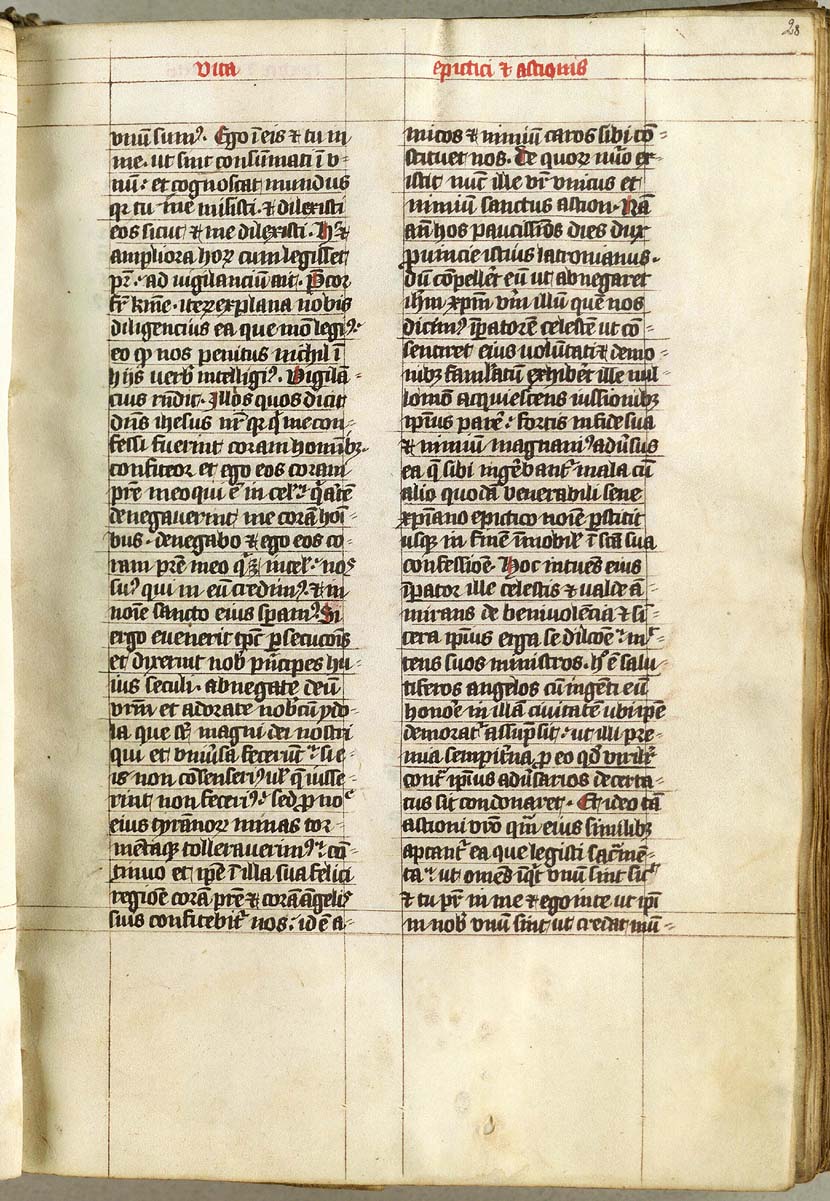 28
vita
epictici ⁊ astionis
vnū sumꝰ. Ego ī eis ⁊ tu in
me. ut sint consūmati ī v=
nū: et cognoscat mundus
qꝛ tu me misisti. ⁊ dilexisti
eos sicut ⁊ me dilexisti. Hec ⁊
ampliora hoꝝ cum legisset
pr̄: ad vigilanciū ait. P̄cor
fr̄ kme. iteꝝ explana nobis
diligencius ea que mō legiꝰ:
eo ꝙ nos penitus nichil ī
hijs verb intelligiꝰ. Vigilā=
cius rn̄dit. Illos quos dicit
dn̄s ihesus nr̄ qꝛ qͥ me con=
fessi fuerint coram homībꝫ.
confiteor et ego eos coram
pr̄e meo qui ē in cel: qͥ autē
denegauerint me corā hoī=
bus. denegabo ⁊ ego eos co=
ram pr̄e meo qͥ ē in cel: nos
suꝰ qui in eū credimꝰ. ⁊ in
noīe sancto eius sp̄amꝰ. Si
ergo euenerit tp̄c ꝑsecucōis
et dixerint nob pͥncipes hu=
ius seculi. abnegate deū
vr̄m et adorate nobcū ydo=
la que sꝫ magni dei nostri
qui et vniūsa fecerūt: si e=
is non cōsenseriꝰ ul̄ q̄ iusse=
rint non feceriꝰ: sed ꝓ noē
eius tyrannoꝝ minas tor=
mētaqꝫ tollerauerimꝰ: cō=
tinuo et ip̄e ī illa sua felici
regiōe corā pr̄e ⁊ corā angelis
suis confitebitᷣ nos: id ē a=
micos ⁊ nimiū caros sibi cō=
stituet nos. De quoꝝ nūo ex=
istit nūc ille vr̄ vnicus et
nimiū sanctus astion. Nā
an̄ hos paucissīos dies dux
ꝓuincie istius latronianus.
dū cōpellēt eū ut abnegaret
ihm̄ xpm̄ vm̄ illū quē nos
dicimꝰ īꝑatorē celestē ut cō=
sentiret eius voluntati ⁊ demo=
nibꝫ famlatū exhibēt ille nul=
lomō acquiescens iussionibꝫ
ip̄ius parē: fortis in fide sua
⁊ nimiū magnaniꝰ adūsus
ea q̄ sibi ingēbantᷣ mala cū
alio quodā venerabili sene
xp̄iano epictico noīe ꝑstitit
usqꝫ in finē īmobil ī sc̄a sua
confessiōe. Hoc intuēs eius
īꝑator ille celestis ⁊ valde ā=
mirans de beniuolēcia ⁊ si=
cera ip̄ius erga se dilcōe: mi=
tens suos ministros. h̄ ē salu=
tiferos angelos cū ingēti eū
honoꝛe in illā ciuitatē ubi ip̄e
demoratᷣ assūpsit: ut illi pre=
mia sempit̄na ꝓ eo qd̄ virilit̄
cont̄ ip̄ius adūsarios decerta=
tus sit condonaret. Et ideo tā
astioni vr̄o qͣm eius similibꝫ
aptantᷣ ea que legisti sac̄mē=
ta: ut omēs īqt vnū sint sic
⁊ tu pr̄ in me ⁊ ego in te ut ip̄i
in nob vnū sint ut credat mū=